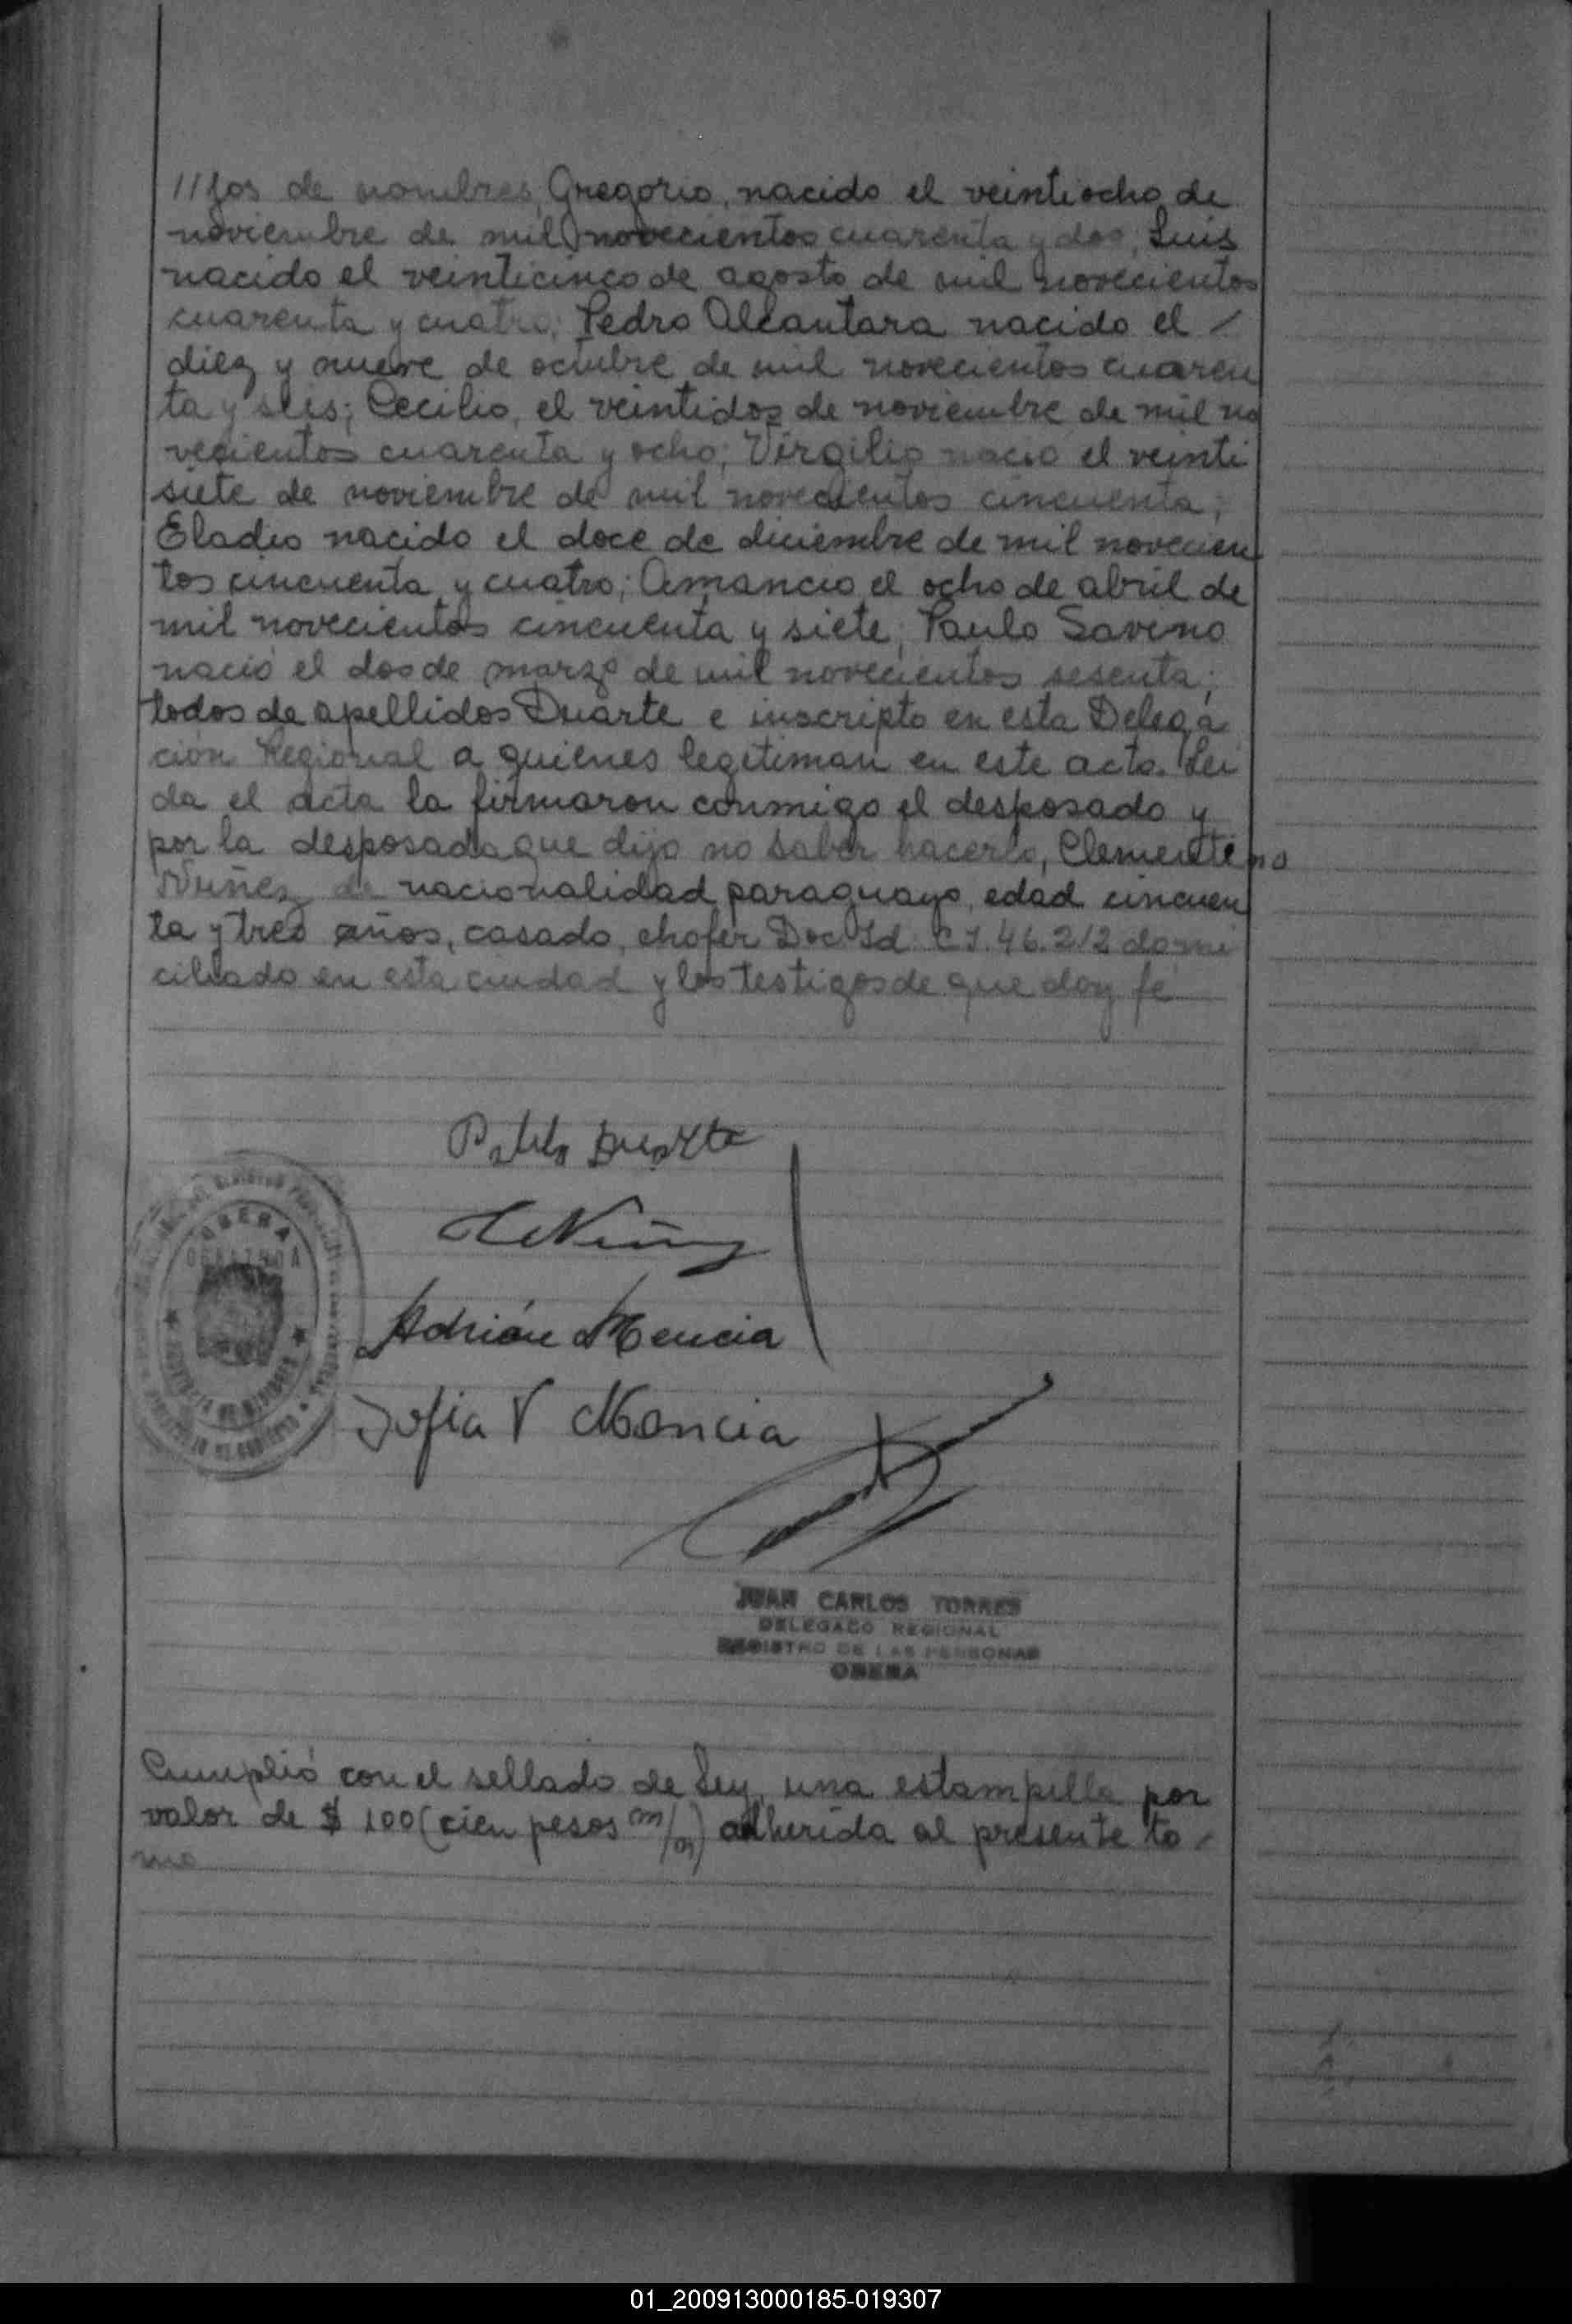 //jos de nombres, Gregorio, nacido el veintiocho de
noviembre de mil novecientos cuarenta y dos, Luis
nacido el veinticinco de agosto de mil novecientos
cuarenta y cuatro; Pedro Alcantara nacido el /
diez y nueve de octubre de mil novecientos cuaren
ta y seis; Cecilio, el veintidos de noviembre de mil no
vecientos cuarenta y ocho; Virgilio nació el veinti
siete de noviembre de mil novecientos cincuenta;
Eladio nacido el doce de diciembre de mil novecien
tos cincuenta y cuatro; Amancio el ocho de abril de
mil novecientos cincuenta y siete; Paulo Saveno
nació el dos de marzo de mil novecientos sesenta;
todos de apellidos Duarte e inscripto en esta Delega
ción Regional a quienes legitiman en este acto. Leí
da el acta la firmaron conmigo el desposado y
por la desposada que dijo no saber hacerlo, Clementino
Nuñez de nacionalidad paraguayo, edad cincuen
ta y tres años, casado, chofer Doc. Id. C I. 46.212 domi
ciliado en esta ciudad y los testigos de que doy fé
Duarte
OBERA
Adrián Mencia
Sofia V Mencia
JUAN CARLOS TORRES
DELEGADO REGIONAL
REGISTRO DE LAS PERSONAS
OBERA
Cumplió con el sellado de Ley, una estampilla por
valor de $ 100 (cien pesos m/n) adherida al presente to /
mo
01_200913000185-019307